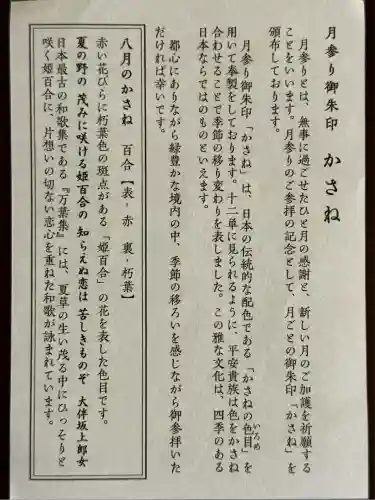 月参り御朱印 かさね
月参りとは、無事に過ごせたひと月の感謝と、新しい月のご加護を祈願する
ことをいいます。月参りのご参拝の記念として、月ごとの御朱印「かさね」を
頒布しております。
月参り御朱印「かさね」は、日本の伝統的な配色である「かさねの色目」を
いろめ
用いて奉製をしております。十二単に見られるように、平安貴族は色をかさね
合わせることで季節の移り変わりを表しました。この雅な文化は、四季のある
日本ならではのものといえます。
都心にありながら緑豊かな境内の中、季節の移ろいを感じながら御参拝いた
だければ幸いです。
八月のかさね 百合【表・赤 裏・朽葉】
赤い花びらに朽葉色の斑点がある「姫百合」の花を表した色目です。
夏の野の 茂みに咲ける姫百合の 知らえぬ恋は 苦しきものぞ 大伴坂上郎女
日本最古の和歌集である『万葉集』には、夏草の生い茂る中にひっそりと
咲く姫百合に、片想いの切ない恋心を重ねた和歌が詠まれています。